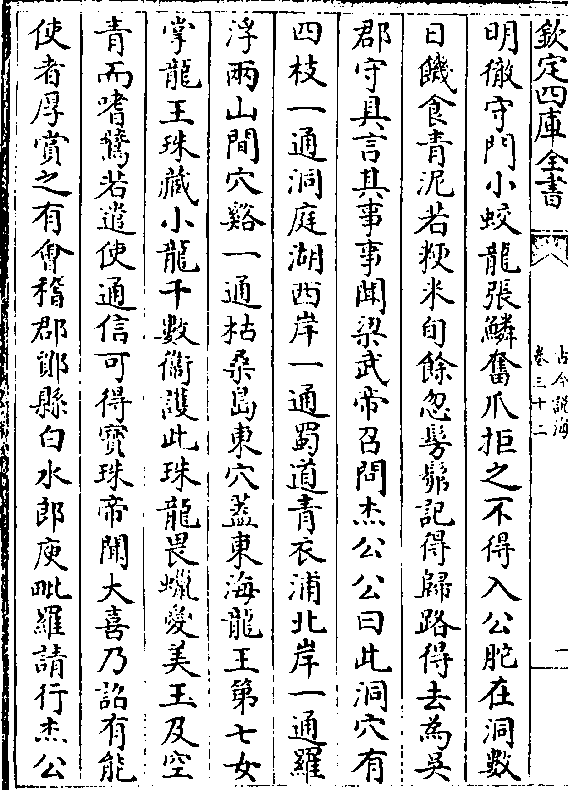 欽定四庫全書
古今說海
卷三十二
一
明徹守門小蛟龍張鱗奮爪拒之不得入公䏢在洞數
日饑食青泥若粳米旬餘忽髣髴記得歸路得去為吳
郡守具言其事事聞梁武帝召問杰公公曰此洞穴有
四枝一通洞庭湖西岸一通蜀道青衣浦北岸一通羅
浮兩山間穴谿一通枯桑島東穴蓋東海龍王第七女
掌龍王珠藏小龍千數衛護此珠龍畏蠟愛美玉及空
青而嗜鷰若遣使通信可得寳珠帝聞大喜乃詔有能
使者厚賞之有會稽郡鄮縣白水郎庾毗羅請行杰公